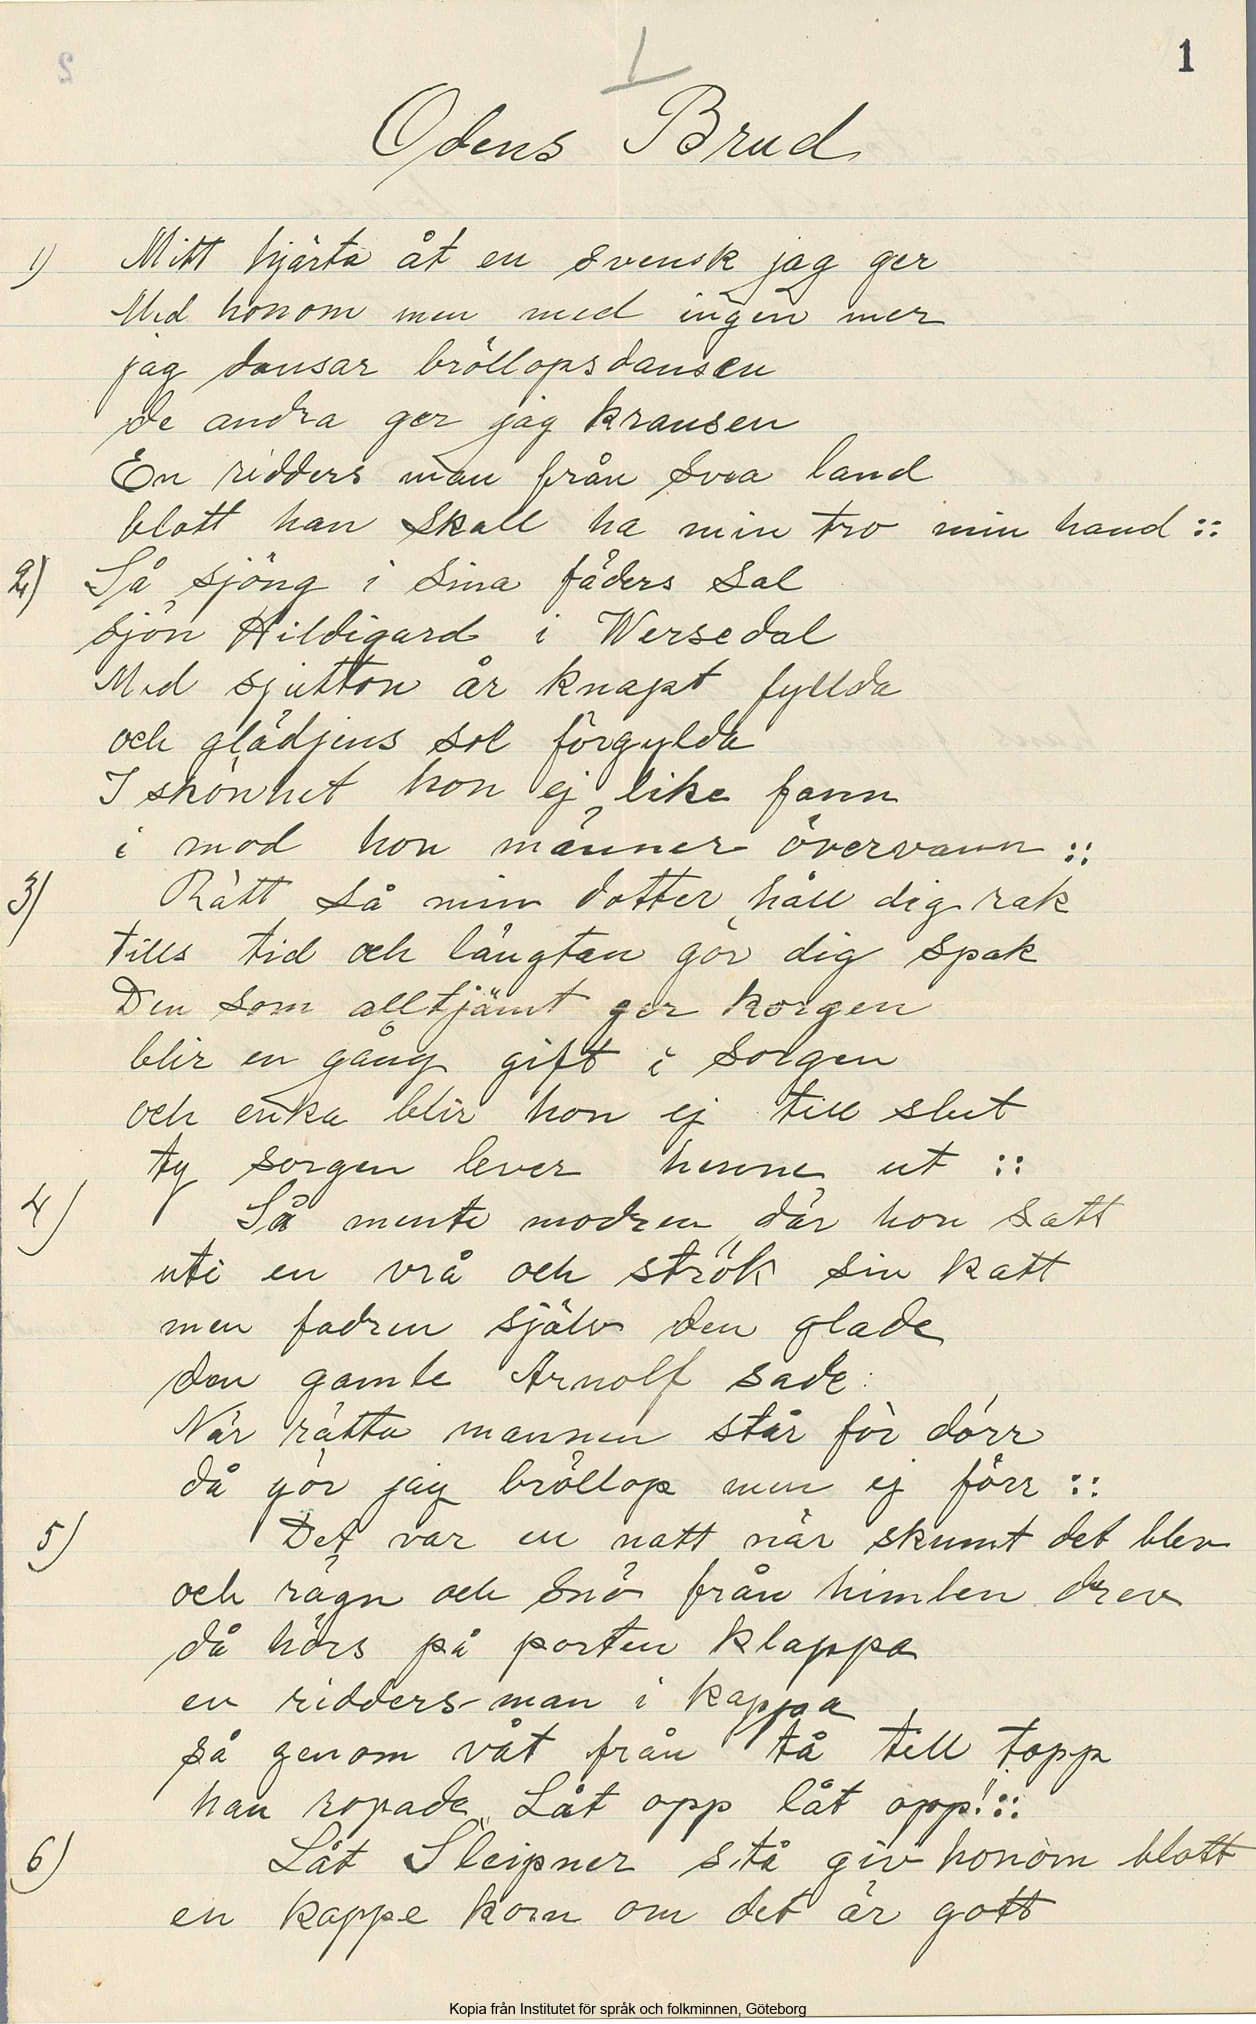 1
1
Odens Brud
1) Mitt hjärta åt en svensk jag ger
Med honom men med ingen mer
jag dansar bröllopsdansen
de andra ger jag kransen
En ridders man från Svea land
blott han skall ha min tro min hand ::
2) Så sjöng i sina fäders sal
sjön Hildigard i Wersedal
Med sjutton år knapt fyllda
och glädjens sol förgylda
I skönhet hon ej like fann
i mod hon männer övervann ::
3) Rätt så min dotter håll dig rak
tills tid och längtan gör dig spak
Den som alltjämt ger korgen
blir en gång gift i sorgen
och enka blir hon ej till slut
ty sorgen lever henne ut ::
4) Så mente modren där hon satt
uti en vrå och strök sin katt
men fadren själv den glade
den gamle Arnolf sade:
När rätta mannen står för dörr
då gör jag bröllop men ej förr ::
5) Det var en natt när skumt det blev
och rägn och snö från himlen drev
då hörs på porten klappa
en ridders-man i kappa
så genom våt från tå till topp
han ropade "Låt opp låt opp! ::
6) Låt Sleipner stå giv honom blott
en kappe korn om det är gott
Kopia från Institutet för språk och folkminnen, Göteborg